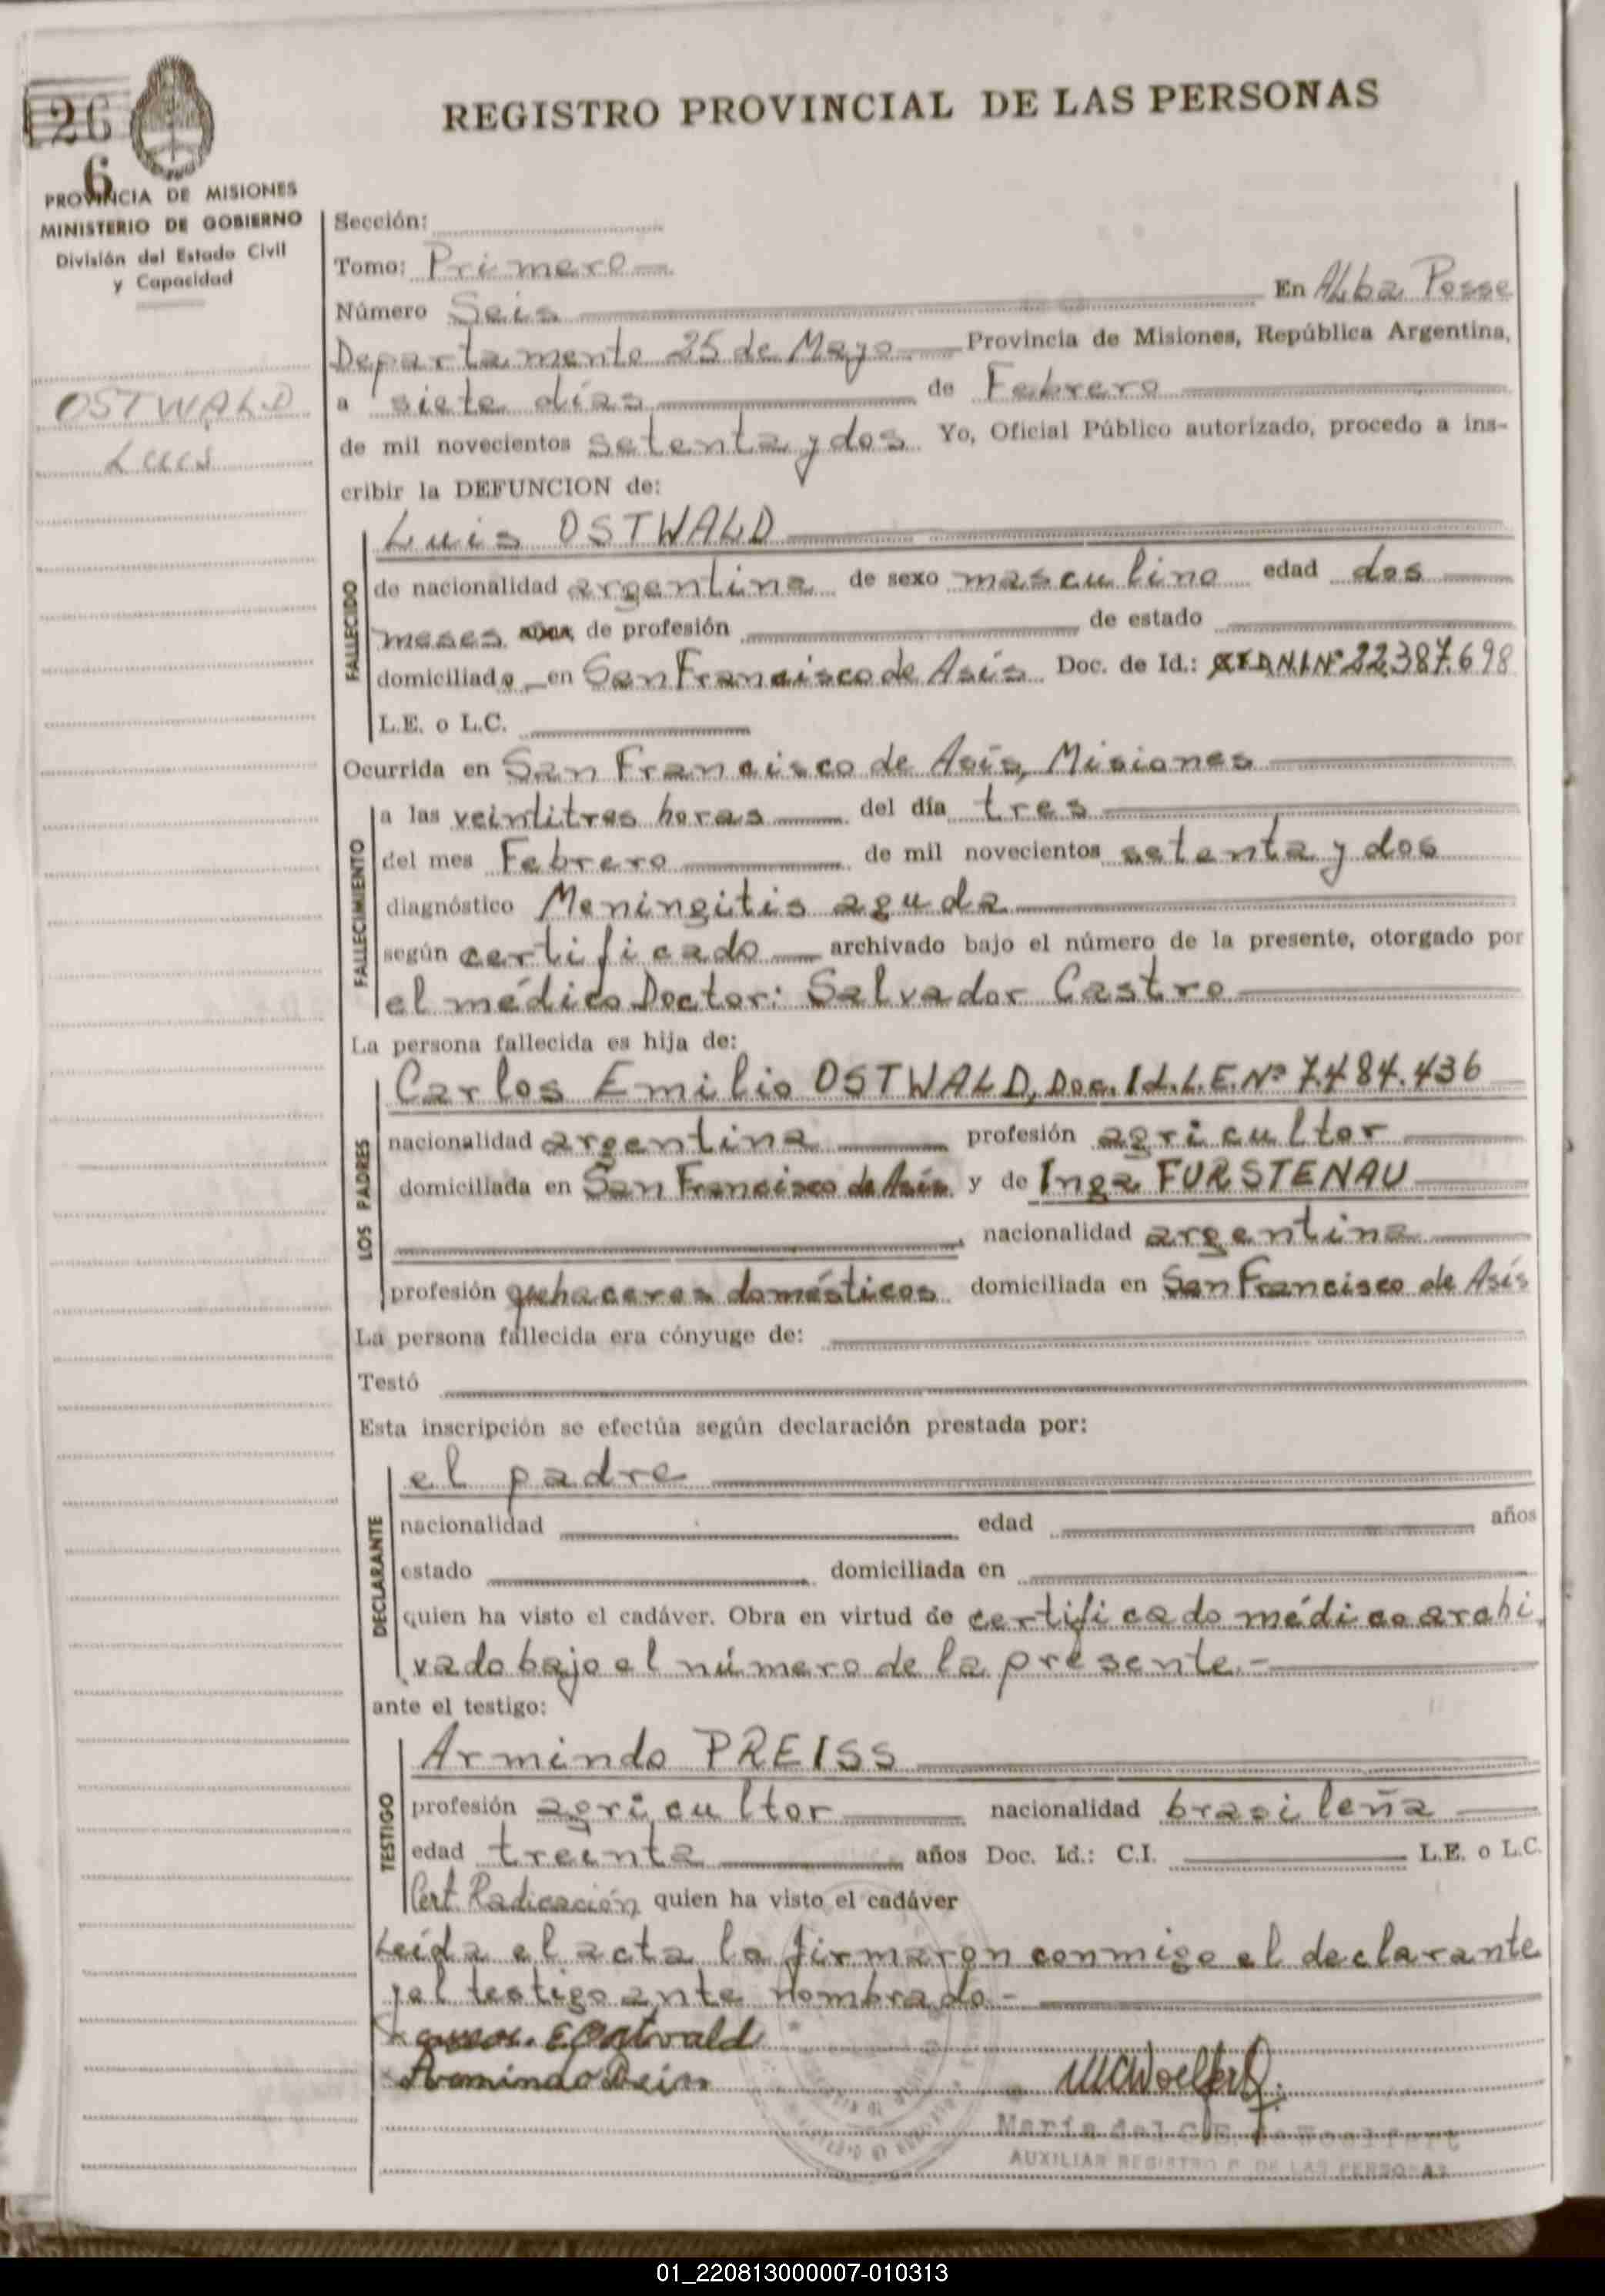 26
6
REGISTRO PROVINCIAL DE LAS PERSONAS
PROVINCIA DE MISIONES
MINISTERIO DE GOBIERNO
División del Estado Civil
y Capacidad
OSTWALD
Luis
Sección:
Tomo: Primero
Número Seis En Alba Posse
Departamento 25 de Mayo Provincia de Misiones, República Argentina,
a siete días de Febrero
de mil novecientos setenta y dos Yo, Oficial Público autorizado, procedo a ins-
cribir la DEFUNCION de:
FALLECIDO
Luis OSTWALD
de nacionalidad argentina de sexo masculino edad dos
meses de profesión de estado
domiciliado en San Francisco de Asís Doc. de Id.: D.N.I Nº 22.387.698
L.E. o L.C.
Ocurrida en San Francisco de Asís, Misiones
FALLECIMIENTO
a las veintitres horas del día tres
del mes Febrero de mil novecientos setenta y dos
diagnóstico Meningitis aguda
según certificado archivado bajo el número de la presente, otorgado por
el médico Doctor: Salvador Castro
La persona fallecida es hija de:
LOS PADRES
Carlos Emilio OSTWALD, Doc. Id. L.E. Nº 7.484.436
nacionalidad argentina profesión agricultor
domiciliada en San Francisco de Asís y de Inga FURSTENAU
nacionalidad argentina
profesión quehaceres domésticos domiciliada en San Francisco de Asís
La persona fallecida era cónyuge de:
Testó
Esta inscripción se efectúa según declaración prestada por:
DECLARANTE
el padre
nacionalidad edad años
estado domiciliada en
quien ha visto el cadáver. Obra en virtud de certificado médico archi
vado bajo el número de la presente.-
ante el testigo:
TESTIGO
Armindo PREISS
profesión agricultor nacionalidad brasileña
edad treinta años Doc. Id.: C.I. L.E. o L.C.
Cert. Radicación quien ha visto el cadáver
Leída el acta la firmaron conmigo el declarante
y el testigo ante nombrado.-
E Ostwald
Armindo Preiss
MCWoelfert
María del C. E. de Woelfert
AUXILIAR REGISTRO P. DE LAS PERSONAS
01_220813000007-010313